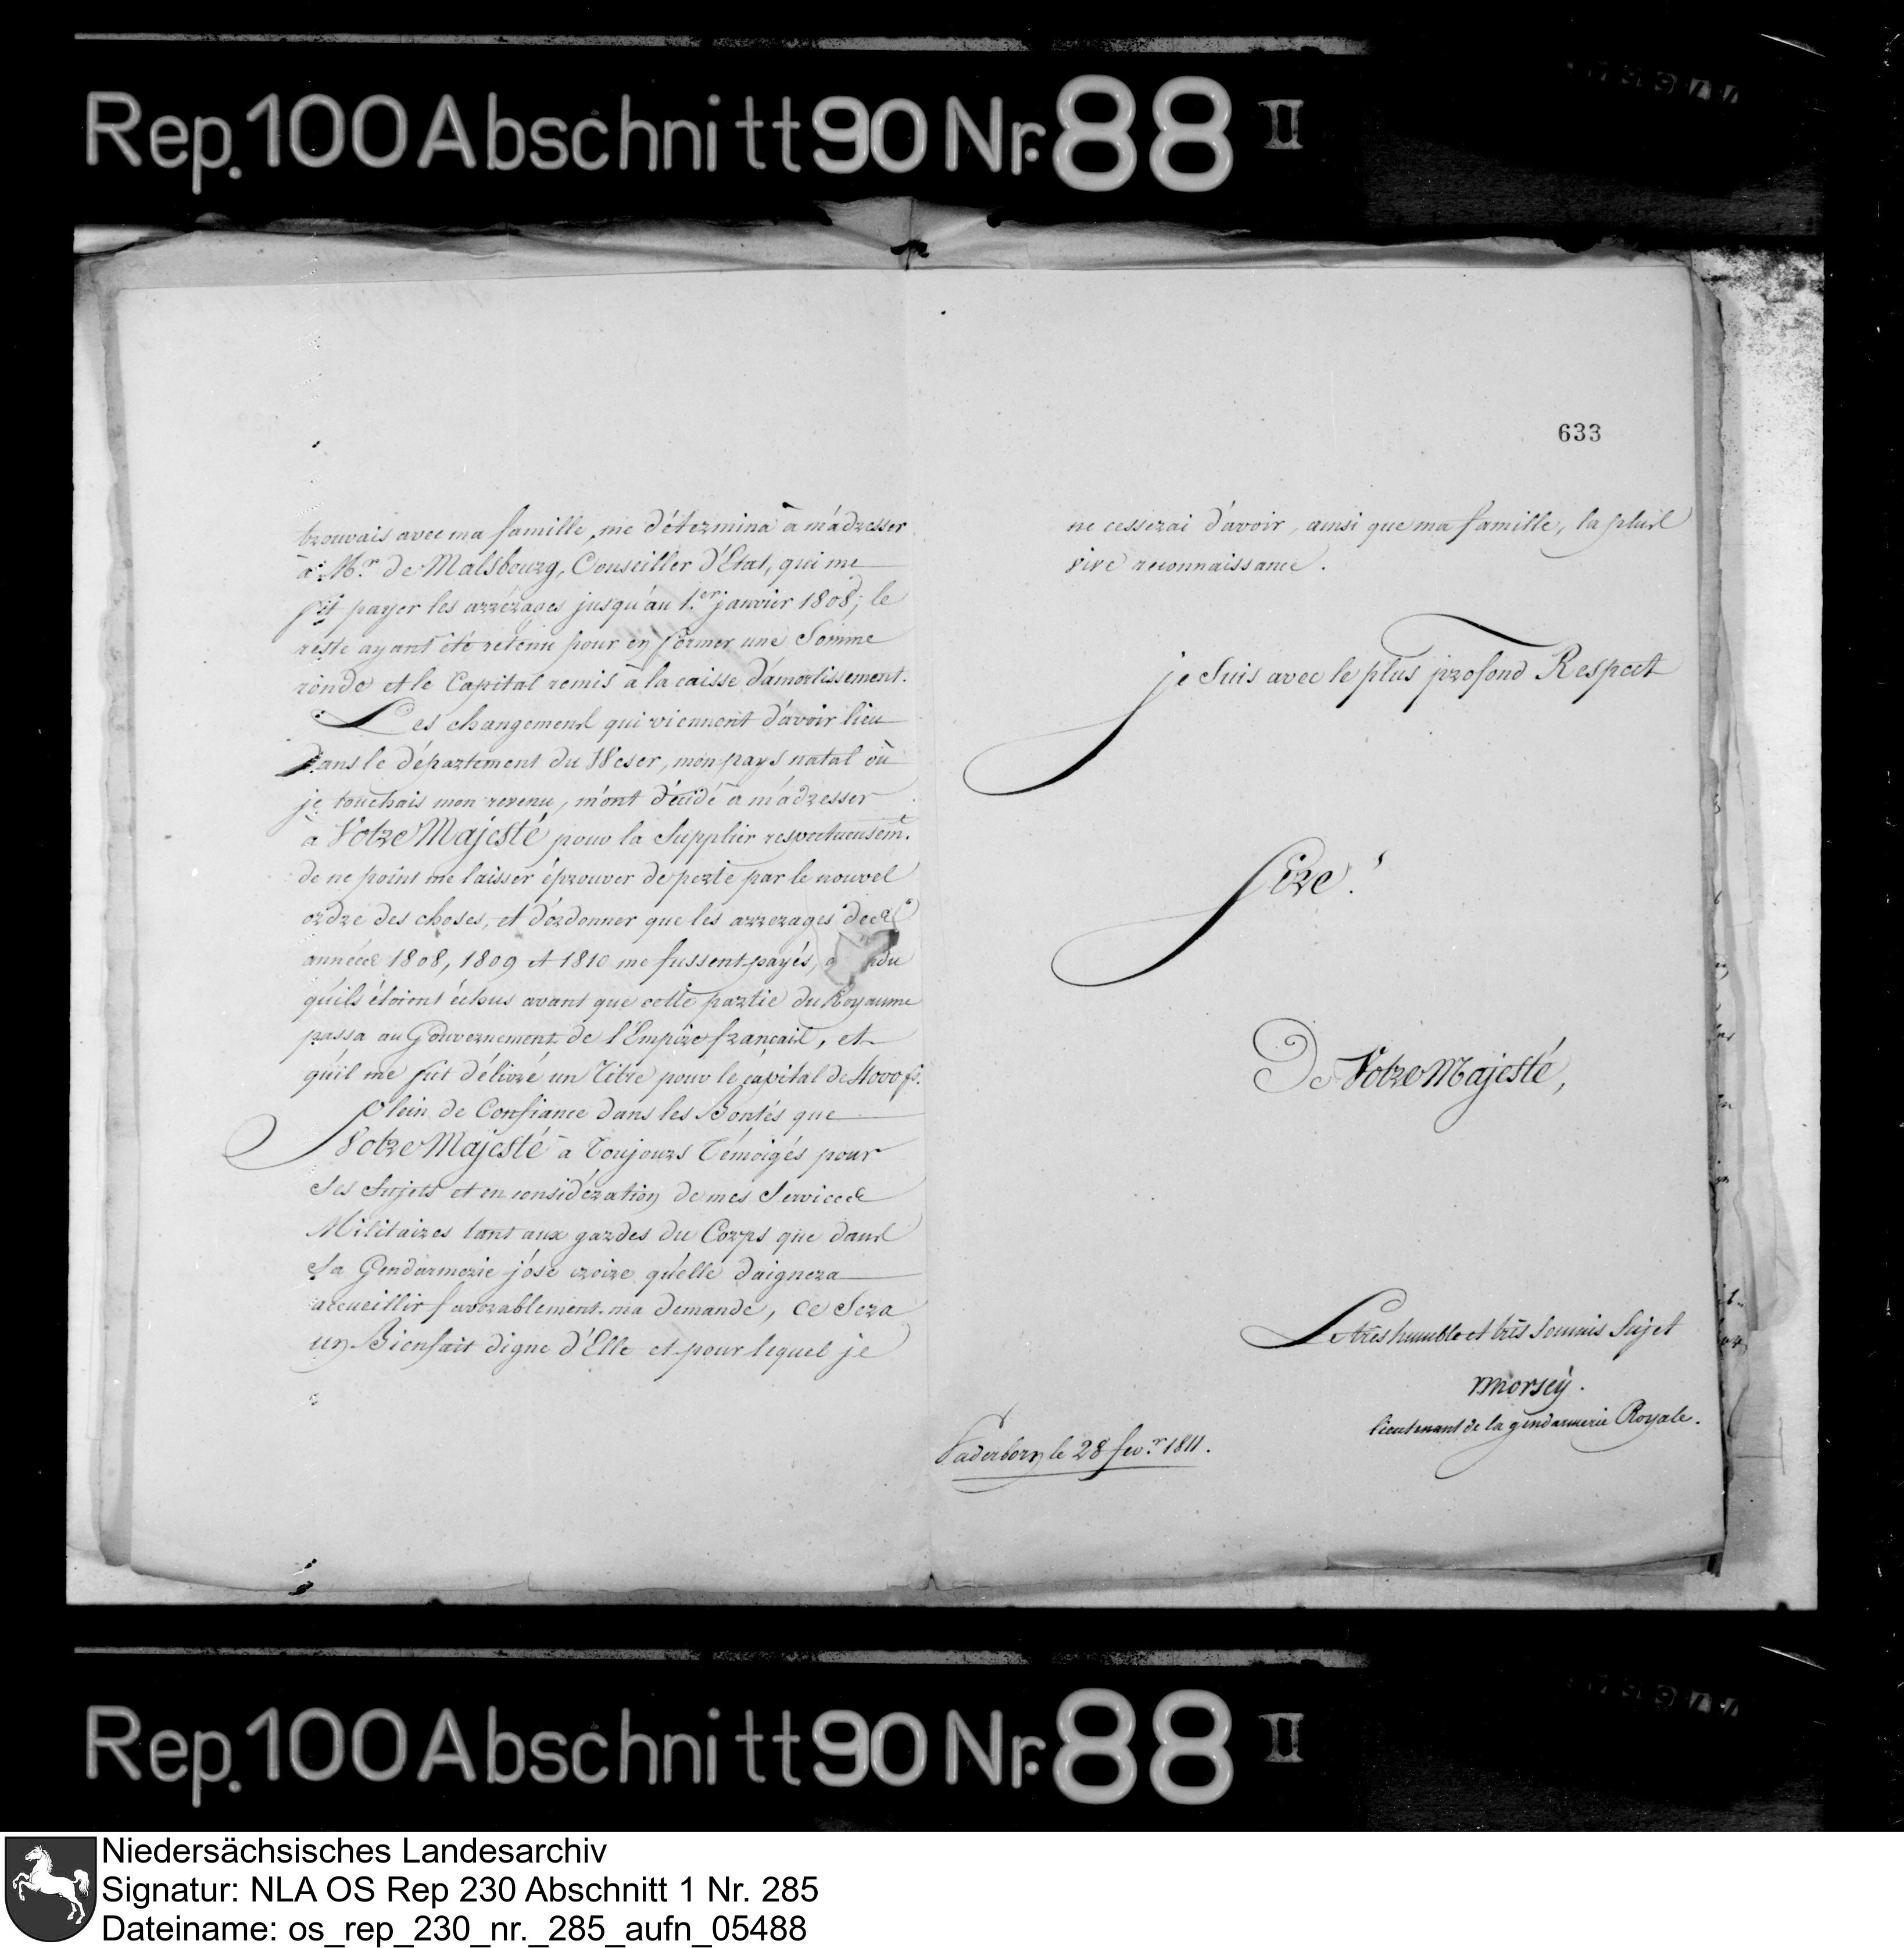 Rep. 100 Abschnitt 90 Nr. 88 II
trouvais avec ma famille, me détermina à m'adresser
à Mr. de Malsbourg, Conseiller d'Etat, qui me
fit payer les arrérages jusqu'au 1.er janvier 1808; le
reste ayant été retenu pour en former une Somme
ronde et le Capital remis à la caisse d'amortissement.
Les changemens qui viennent d'avoir lieu
dans le département du Weser, mon pays natal où
je touchais mon revenu, m'ont décidé à m'adresser
à Votre Majesté pour la Supplier respectueusemt.
de ne point me laisser éprouver de perte par le nouvel
ordre des choses, et d'ordonner que les arrerages des
années 1808, 1809 et 1810 me fussent payés,
qu'ils étoient échus avant que cette partie du Royaume
passa au Gouvernement de l'Empire français, et
qu'il me fut délivré un Titre pour le capital de 4000 fs.
Plein de Confiance dans les Bontés que
Votre Majesté à Toujours Témoigés pour
Ses Sujets et en considération de mes Services
Militaires tant aux gardes du Corps que dans
Sa Gendarmerie j'ose croire qu'elle daignera
accueillir favorablement ma demande, ce Sera
un Bienfait digne d'Elle et pour lequel je
633
ne cesserai d'avoir, ainsi que ma famille, la plus
vive reconnaissance.
je Suis avec le plus profond Respect
Sire!
De Votre Majesté,
Le très humble et très Soumis Sujet
Morseÿ.
lieutenant de la gendarmerie Royale.
Paderborn le 28 fev.r 1811.
Rep. 100 Abschnitt 90 Nr. 88 II
Niedersächsisches Landesarchiv
Signatur: NLA OS Rep 230 Abschnitt 1 Nr. 285
Dateiname: os_rep_230_nr._285_aufn_05488